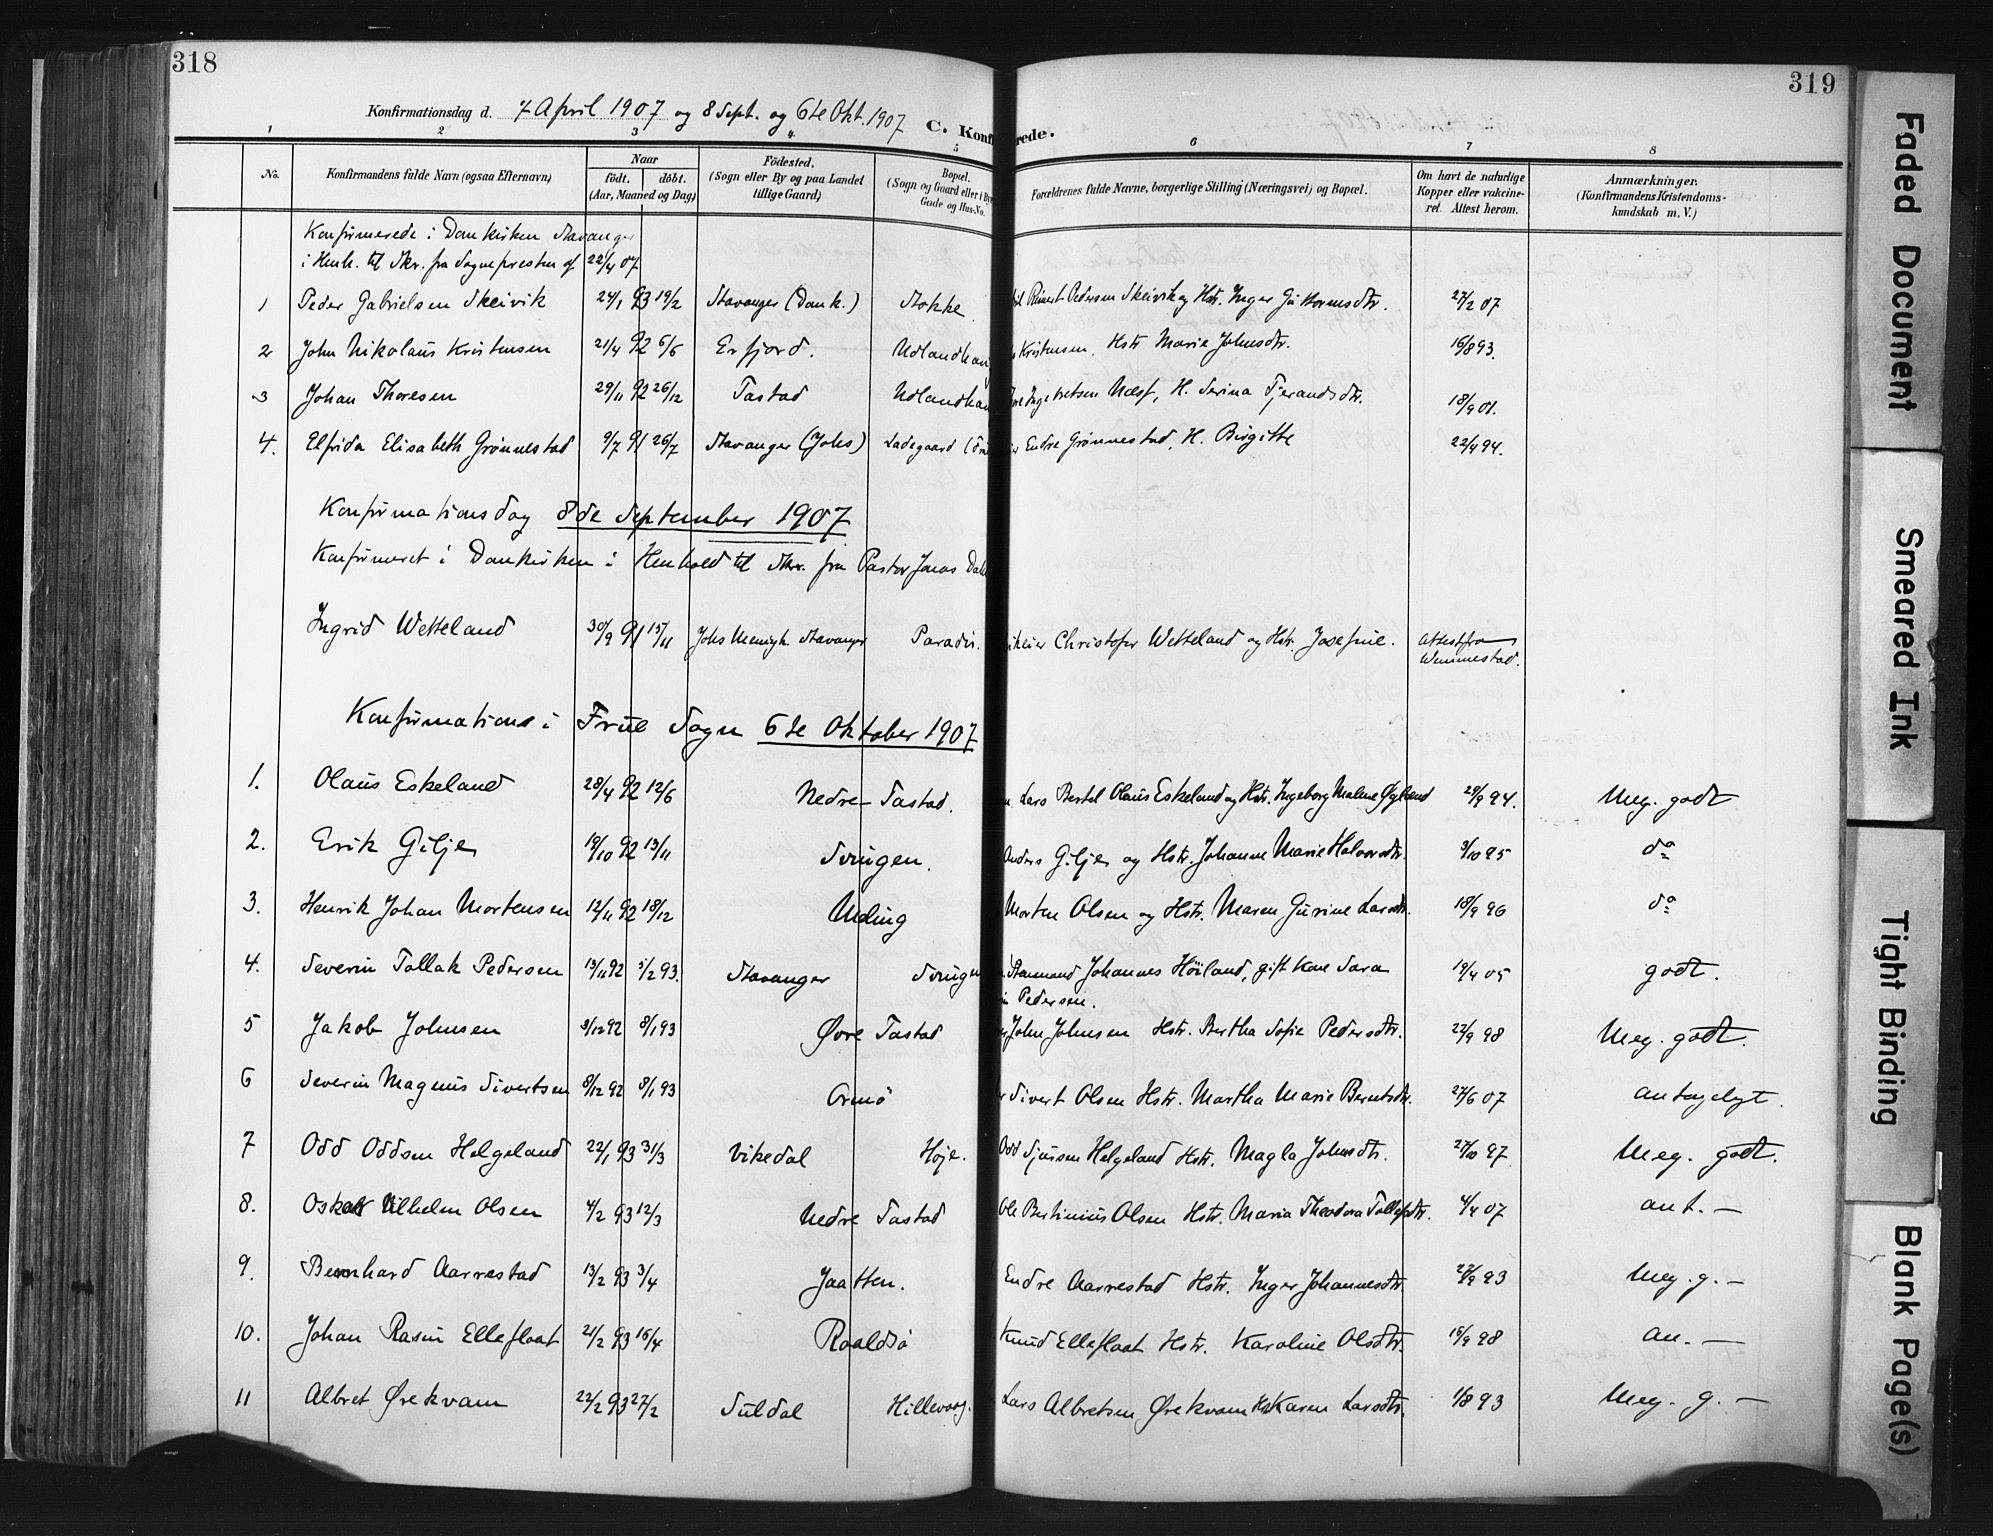 318
319
Konfirmationsdag d. 7 April 1907 og 8 Sept. og 6te Okt. 1907
C. Konfirmerede.
1 2 3 4 5 6 7 8
No. Konfirmandens fulde Navn (ogsaa Efternavn) Naar födt. döbt. (Aar, Maaned og Dag) Födested. (Sogn eller By og paa Landet tillige Gaard) Bopæl. (Sogn og Gaard eller i By Gade og Hus-No. Forældrenes fulde Navne, borgerlige Stilling (Næringsvei) og Bopæl. Om havt de naturlige Kopper eller vakcineret. Attest herom. Anmærkninger. (Konfirmandens Kristendomskundskab m. V.)
Konfirmerede i Domkirken Stavanger
i Henh. til Skr. fra Sognepresten af 22/4 07
1 Peder Gabrielsen Skeivik 24/1 93 19/2 Stavanger (Domk.) Stokke Reinert Pedersen Skeivik og Hstr. Inger Guttormsdtr. 27/2 07
2 John Nikolaus Kristensen 21/4 92 6/6 Erfjord. Udlandhaug Kristensen, Hstr Marie Johnsdtr. 16/8 93.
3 Johan Thoresen 29/11 92 26/12 Tastad Udlandhau Ingebretsen Næsf, H. Serina Tjerandsdtr. 18/9 01.
4. Elfrida Elisabeth Grönnestad 9/7 91 26/7 Stavanger (Johs) Ladegaard Endre Grönnestad, H. Birgitte 22/4 94.
Konfirmationsdag 8de September 1907
Konfirmeret i Domkirken i Henhold til Skr. fra Pastor Jonas Dahl
Ingrid Wetteland 30/9 91 15/11 Johs Menigh. Stavanger Paradis. Christofer Wetteland og Hstr. Josefine. Attest fra Wennestad.
Konfirmations i Frue Sogn 6te Oktober 1907
1. Olaus Eskeland 28/4 92 12/6 Nedre Tastad. Lars Bertel Olaus Eskeland og Hstr. Ingeborg Malene Ógland 29/9 94. Meg. godt
2. Erik Gilje 19/10 92 13/11 Tvingen. Anders Gilje og Hstr. Johanne Marie Halvorsdtr. 3/10 95 do
3. Henrik Johan Mortensen 12/11 92 18/12 Meling Morten Olsen og Hstr. Maren Gurine Larsdtr. 18/9 96 do
4. Severin Tollak Pedersen 13/11 92 5/2 93. Stavanger Tvingen Stenmand Johannes Höiland, gift Kone Sara
Pedersen. 19/4 05 godt.
5 Jakob Johnsen 3/12 92 8/1 93 Øvre Tastad John Johnsen Hstr. Bertha Sofie Pedersdtr. 22/9 98 Meg. godt.
6 Severin Magnus Sivertsen 8/12 92 8/1 93 Ormö Sivert Olsen Hstr. Martha Marie Berntsdtr. 27/6 07 antageligt.
7 Odd Oddsen Helgeland 22/1 93 31/3 Vikedal Høje. Odd Sjursen Helgeland Hstr. Magla Johnsdtr. 27/10 97 Meg. godt.
8. Oskar Vilhelm Olsen 4/2 93 12/3 Nedre Tastad Ole Bertinius Olsen Hstr. Maria Theodora Tollefsdtr. 4/4 07 ant. –
9. Bernhard Aarrestad 13/2 93 3/4 Jaatten. Endre Aarrestad Hstr. Inger Johannesdtr. 27/9 93 Meg. g. –
10. Johan Rasin Elleflaat 21/2 93 16/4 Roaldsö Knud Elleflaat Hstr. Karoline Olsdtr. 15/9 98 an. –
11 Albret Ørekvam 22/2 93 27/2 Suldal Hillevaag. Lars Albretsen Ørekvam Hstr Karen Larsdtr. 1/8 93 Meg. g. –
Faded Document
Smeared Ink
Tight Binding
Blank Page(s)